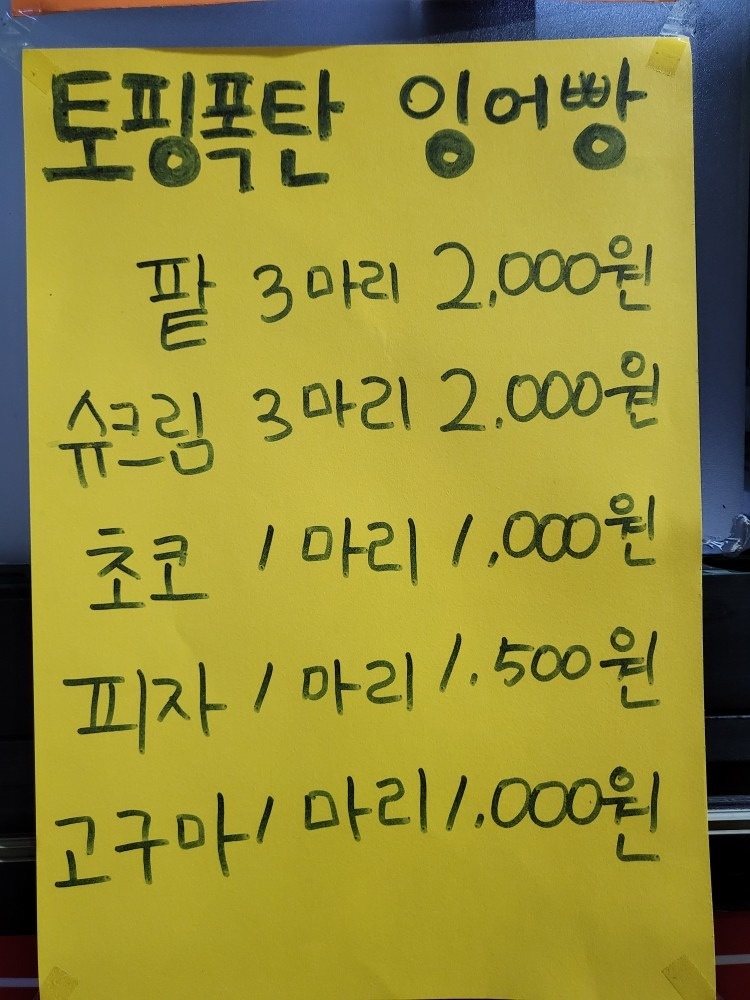 토핑폭탄 잉어빵
팥 3마리 2,000원
슈크림 3마리 2.000원
초코 1마리 1,000원
피자 1마리 1.500원
고구마 1마리 1.000원